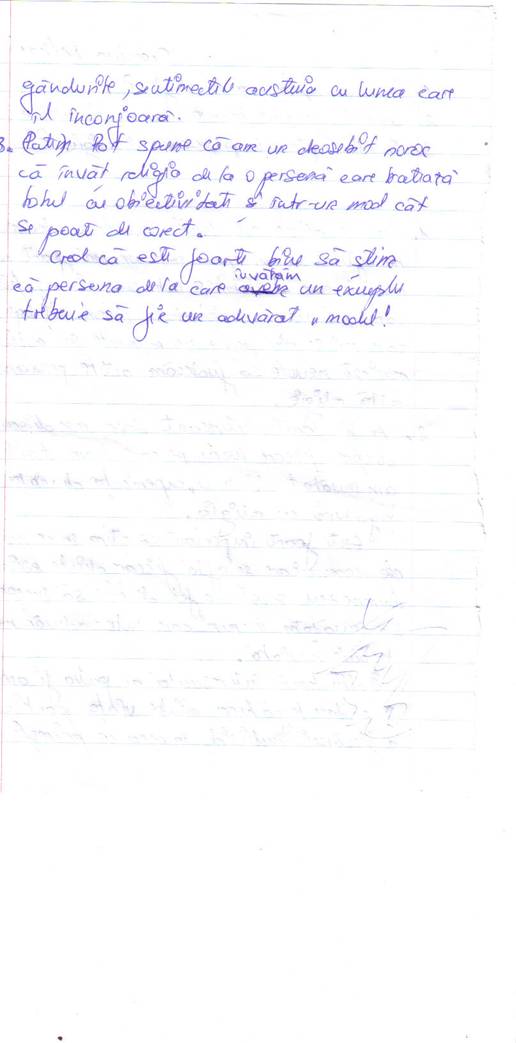 gândurile, sentimentele acestuia cu lumea care
îl înconjoară.
3. Pot spune că am un deosebit noroc
că învăț religia de la o persenă care tratiață
totul cu obiectivitate și într-un mod cât
se poate de corect.
Cred că este foarte bine să știm
că persena de la care învățăm un exemplu
trebuie să fie un adevărat „model!